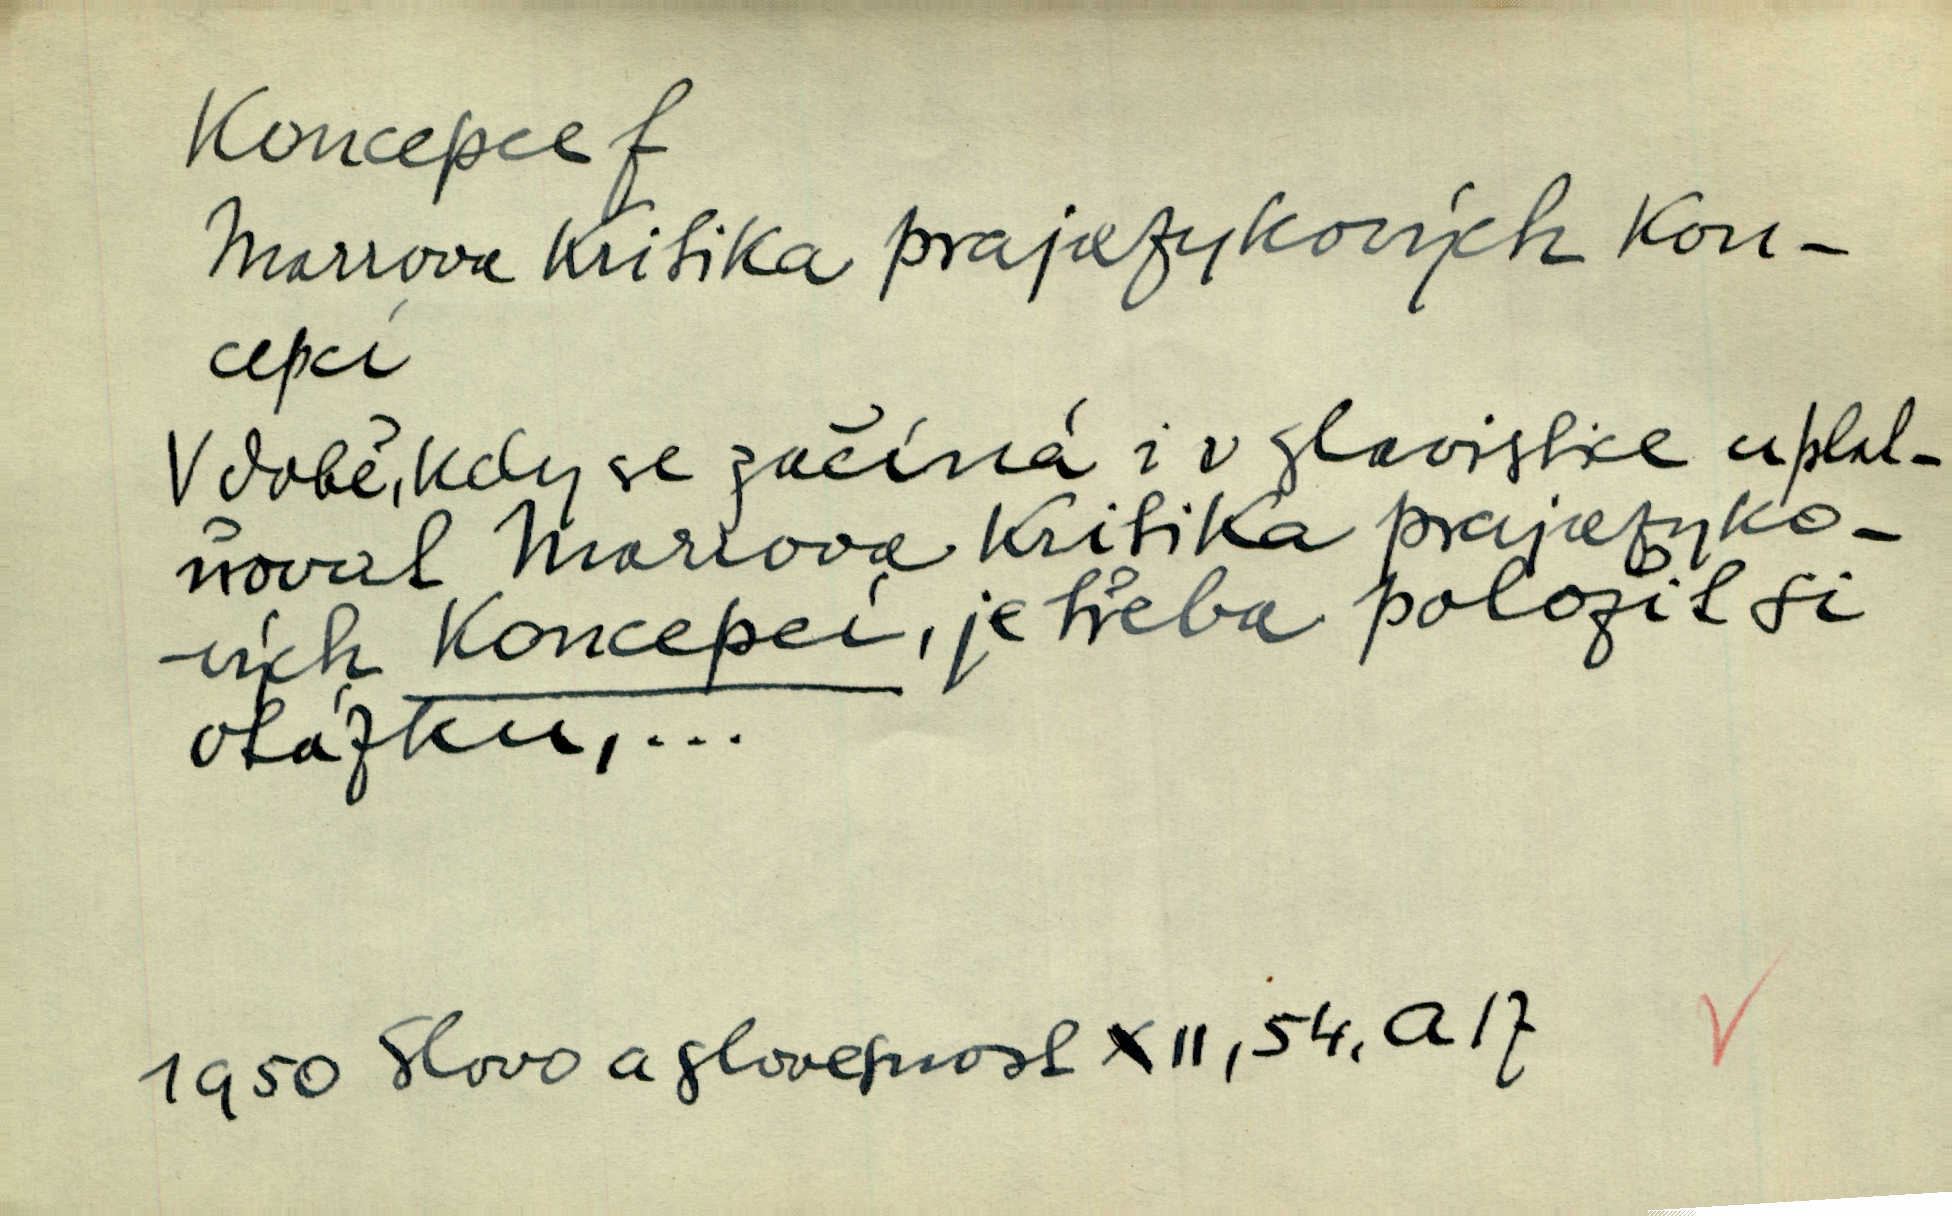 Koncepce f
Marrova kritika prajazykových kon-
cepcí
V době, kdy se začíná i v slavistice uplat-
ňovat Marrova kritika prajazyko-
vých koncepcí, je třeba položit si
otázku,...
1950 Slovo a slovesnost XII, 54, A 17